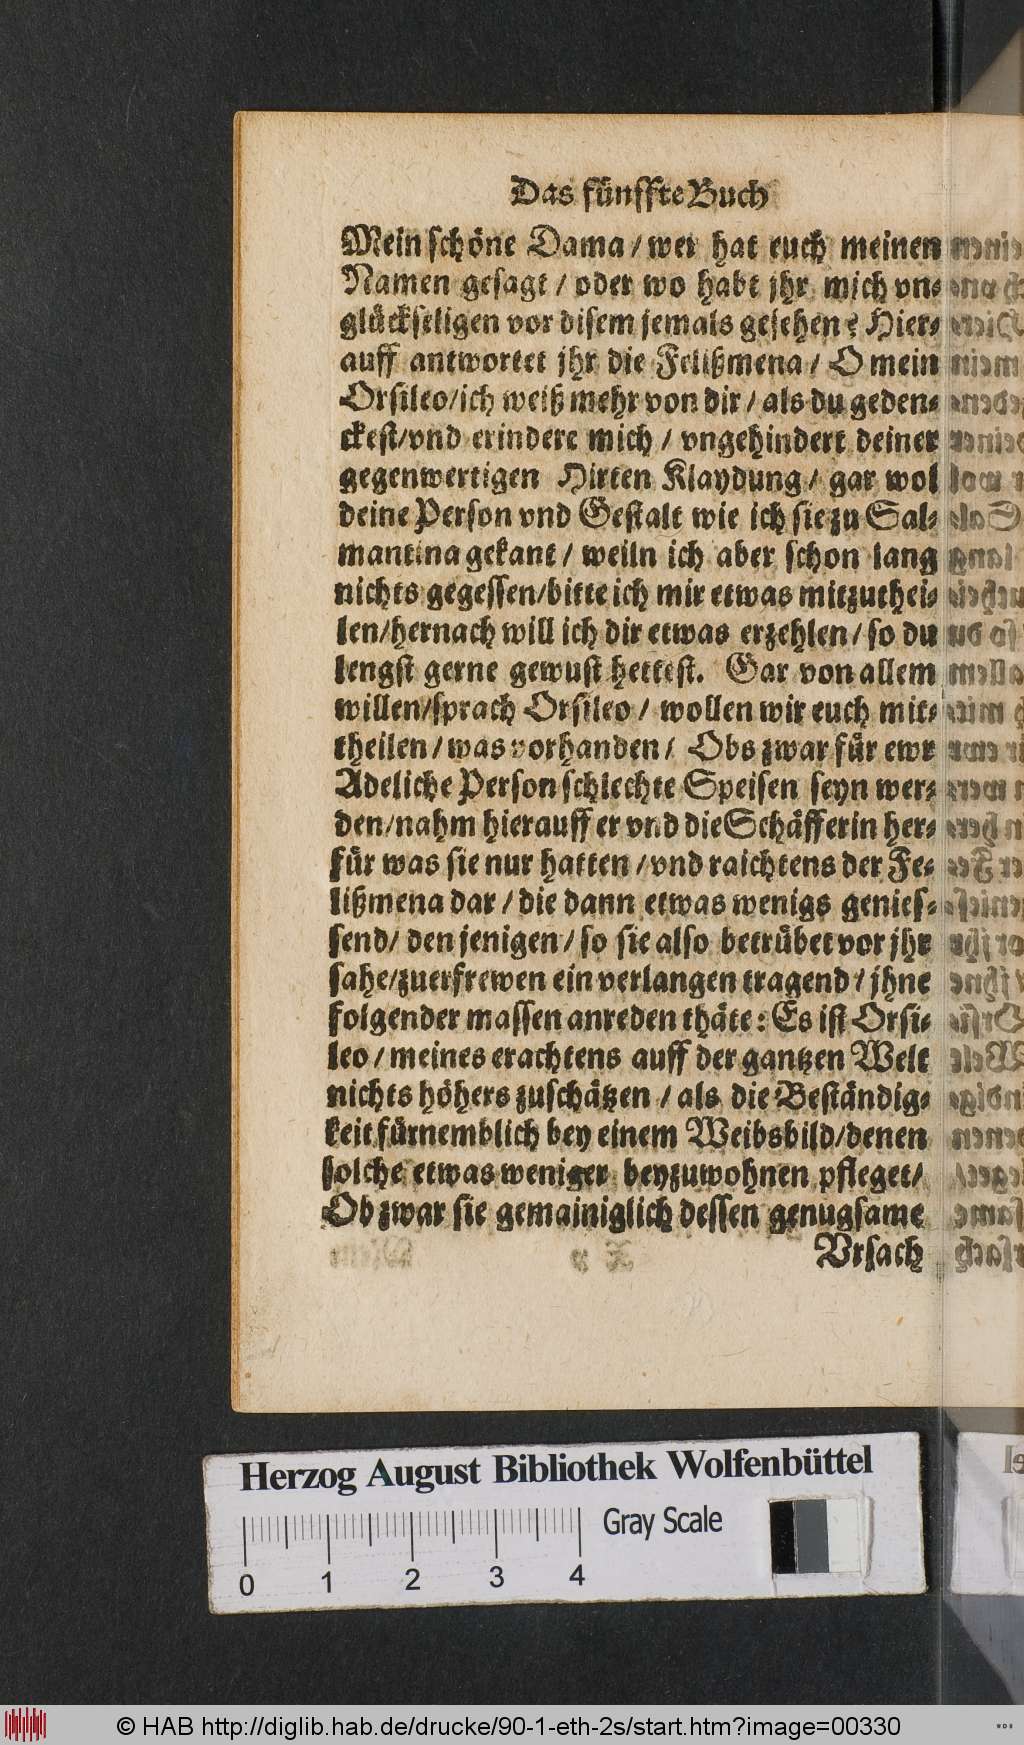 Das fünffte Buch
Mein schöne Dama / wer hat euch meinen
Namen gesagt / oder wo habt jhr mich vn-
glückseligen vor disem jemals gesehen? Hier-
auff antwortet jhr die Felißmena / O mein
Orsileo / ich weiß mehr von dir / als du geden-
ckest / vnd erindere mich / vngehindert deiner
gegenwertigen Hirten Klaydung / gar wol
deine Person vnd Gestalt wie ich sie zu Sal-
mantina gekant / weiln ich aber schon lang
nichts gegessen / bitte ich mir etwas mitzuthei-
len / hernach will ich dir etwas erzehlen / so du
lengst gerne gewust hettest. Gar von allem
willen / sprach Orsileo / wollen wir euch mit-
theilen / was vorhanden / Obs zwar für ewr
Adeliche Person schlechte Speisen seyn wer-
den / nahm hierauff er vnd die Schäfferin her-
für was sie nur hatten / vnd raichtens der Fe-
lißmena dar / die dann etwas wenigs genies-
send / den jenigen / so sie also betrübet vor jhr
sahe / zuerfrewen ein verlangen tragend / jhne
folgender massen anreden thäte: Es ist Orsi-
leo / meines erachtens auff der gantzen Welt
nichts höhers zuschätzen / als die Beständig-
keit fürnemblich bey einem Weibsbild / denen
solche etwas weniger beyzuwohnen pfleget /
Ob zwar sie gemainiglich dessen genugsame
Vrsach
Herzog August Bibliothek Wolfenbüttel
Gray Scale
0 1 2 3 4
© HAB http://diglib.hab.de/drucke/90-1-eth-2s/start.htm?image=00330